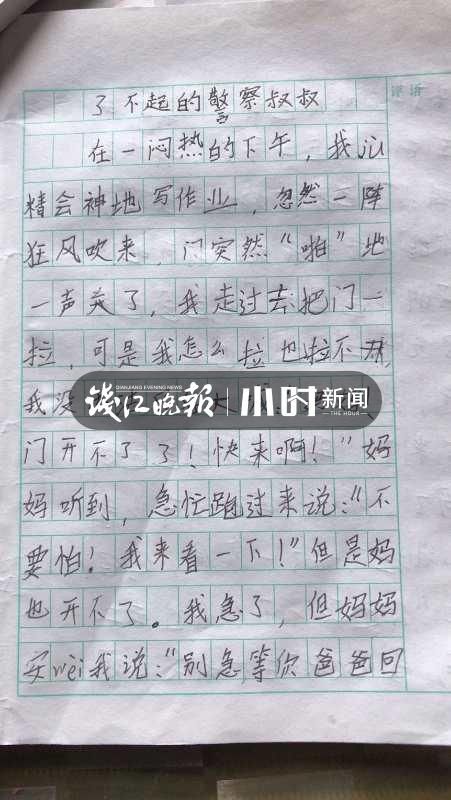 评语
了不起的警察叔叔
在一闷热的下午，我ju
精会神地写作业，忽然一阵
狂风吹来，门突然“啪”地
一声关了，我走过去把门一
拉，可是我怎么拉也拉不开，
我没
钱江晚报
QIANJIANG EVENING NEWS
小时新闻
THE HOUR
门开不了了！快来啊！”妈
妈听到，急忙跑过来说：“不
要怕！我来看一下！”但是妈
也开不了。我急了，但妈妈
安wèi我说：“别急，等你爸爸回